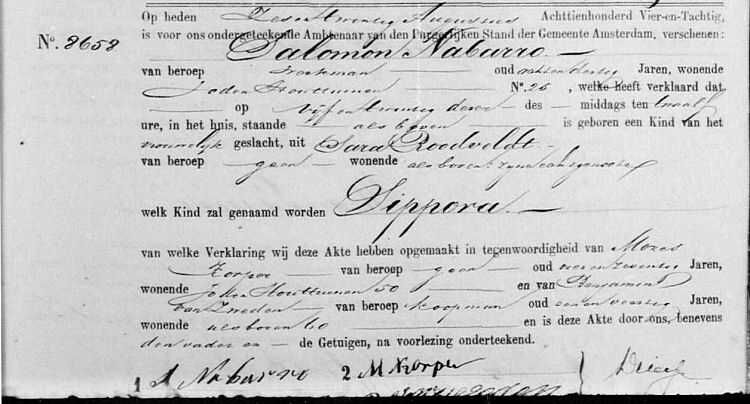 Op heden Zes en twintig Augustus Achttienhonderd Vier-en-Tachtig,
is voor ons ondergeteekende Ambtenaar van den Burgerlijken Stand der Gemeente Amsterdam, verschenen:
No. 8658 Salomon Nabarro
van beroep oud Jaren, wonende
Joden Houttuinen No. 26, welke heeft verklaard dat
op vijf en twintig dezer des middags ten twaalf
ure, in het huis, staande als boven is geboren een Kind van het
vrouwelijk geslacht, uit Sara Roodveldt
van beroep geen wonende als boven zijne
welk Kind zal genaamd worden Sippora
van welke Verklaring wij deze Akte hebben opgemaakt in tegenwoordigheid van Mozes
Korper van beroep geen oud Jaren,
wonende Joden Houttuinen 50 en van Benjamin
van Zweden van beroep koopman oud Jaren,
wonende als boven 60 en is deze Akte door ons, benevens
den vader en de Getuigen, na voorlezing onderteekend.
1 S Nabarro 2 M Korper